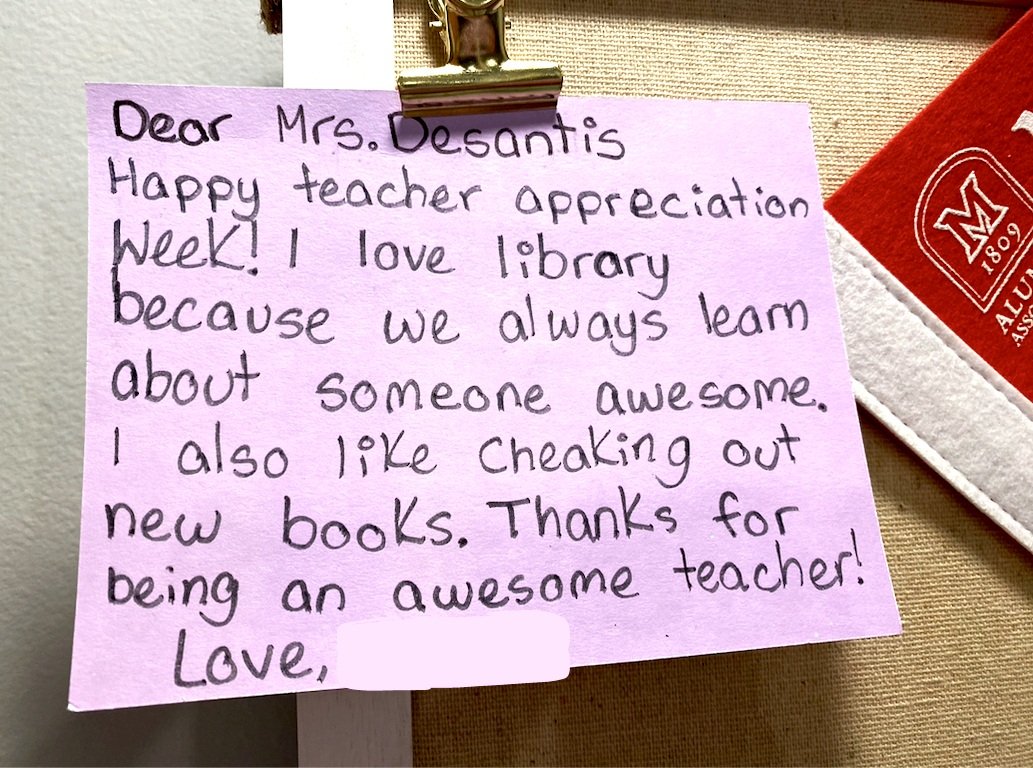 Dear Mrs. Desantis
Happy teacher appreciation
Week! I love library
because we always learn
about someone awesome.
I also like cheaking out
new books. Thanks for
being an awesome teacher!
Love,
M
1809